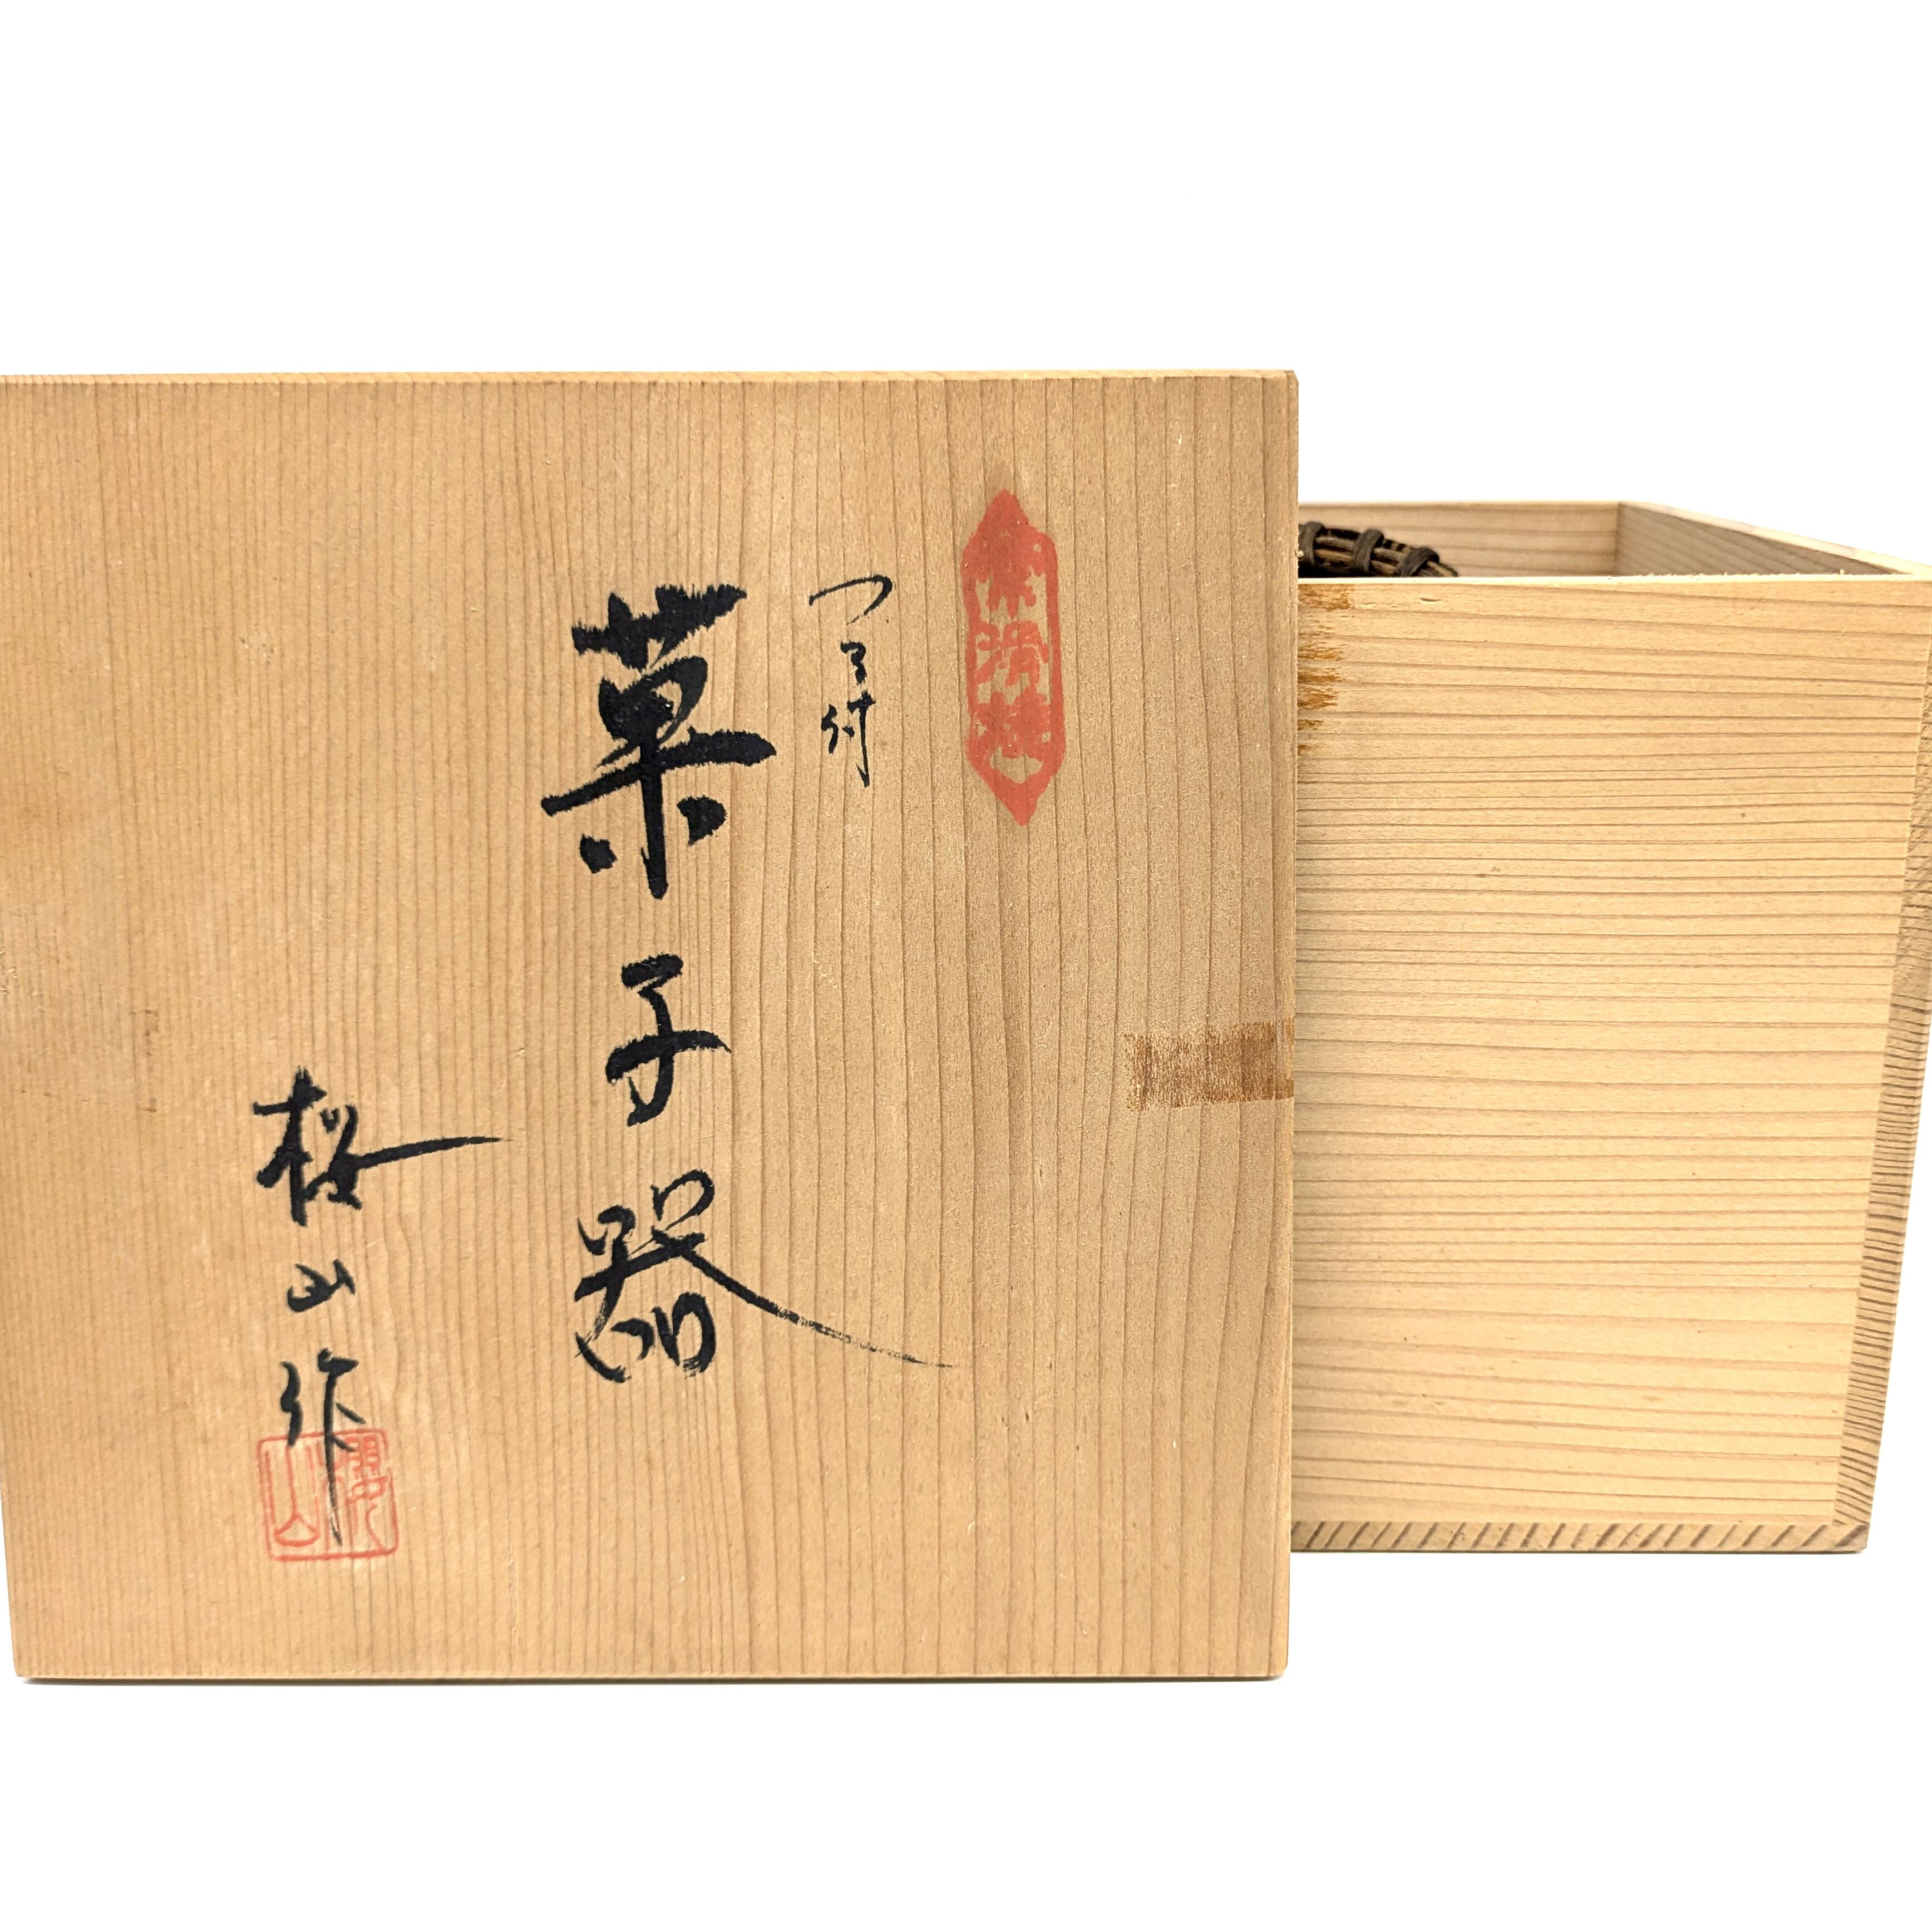 常滑焼
つる付
菓子器
桜山作
櫻山